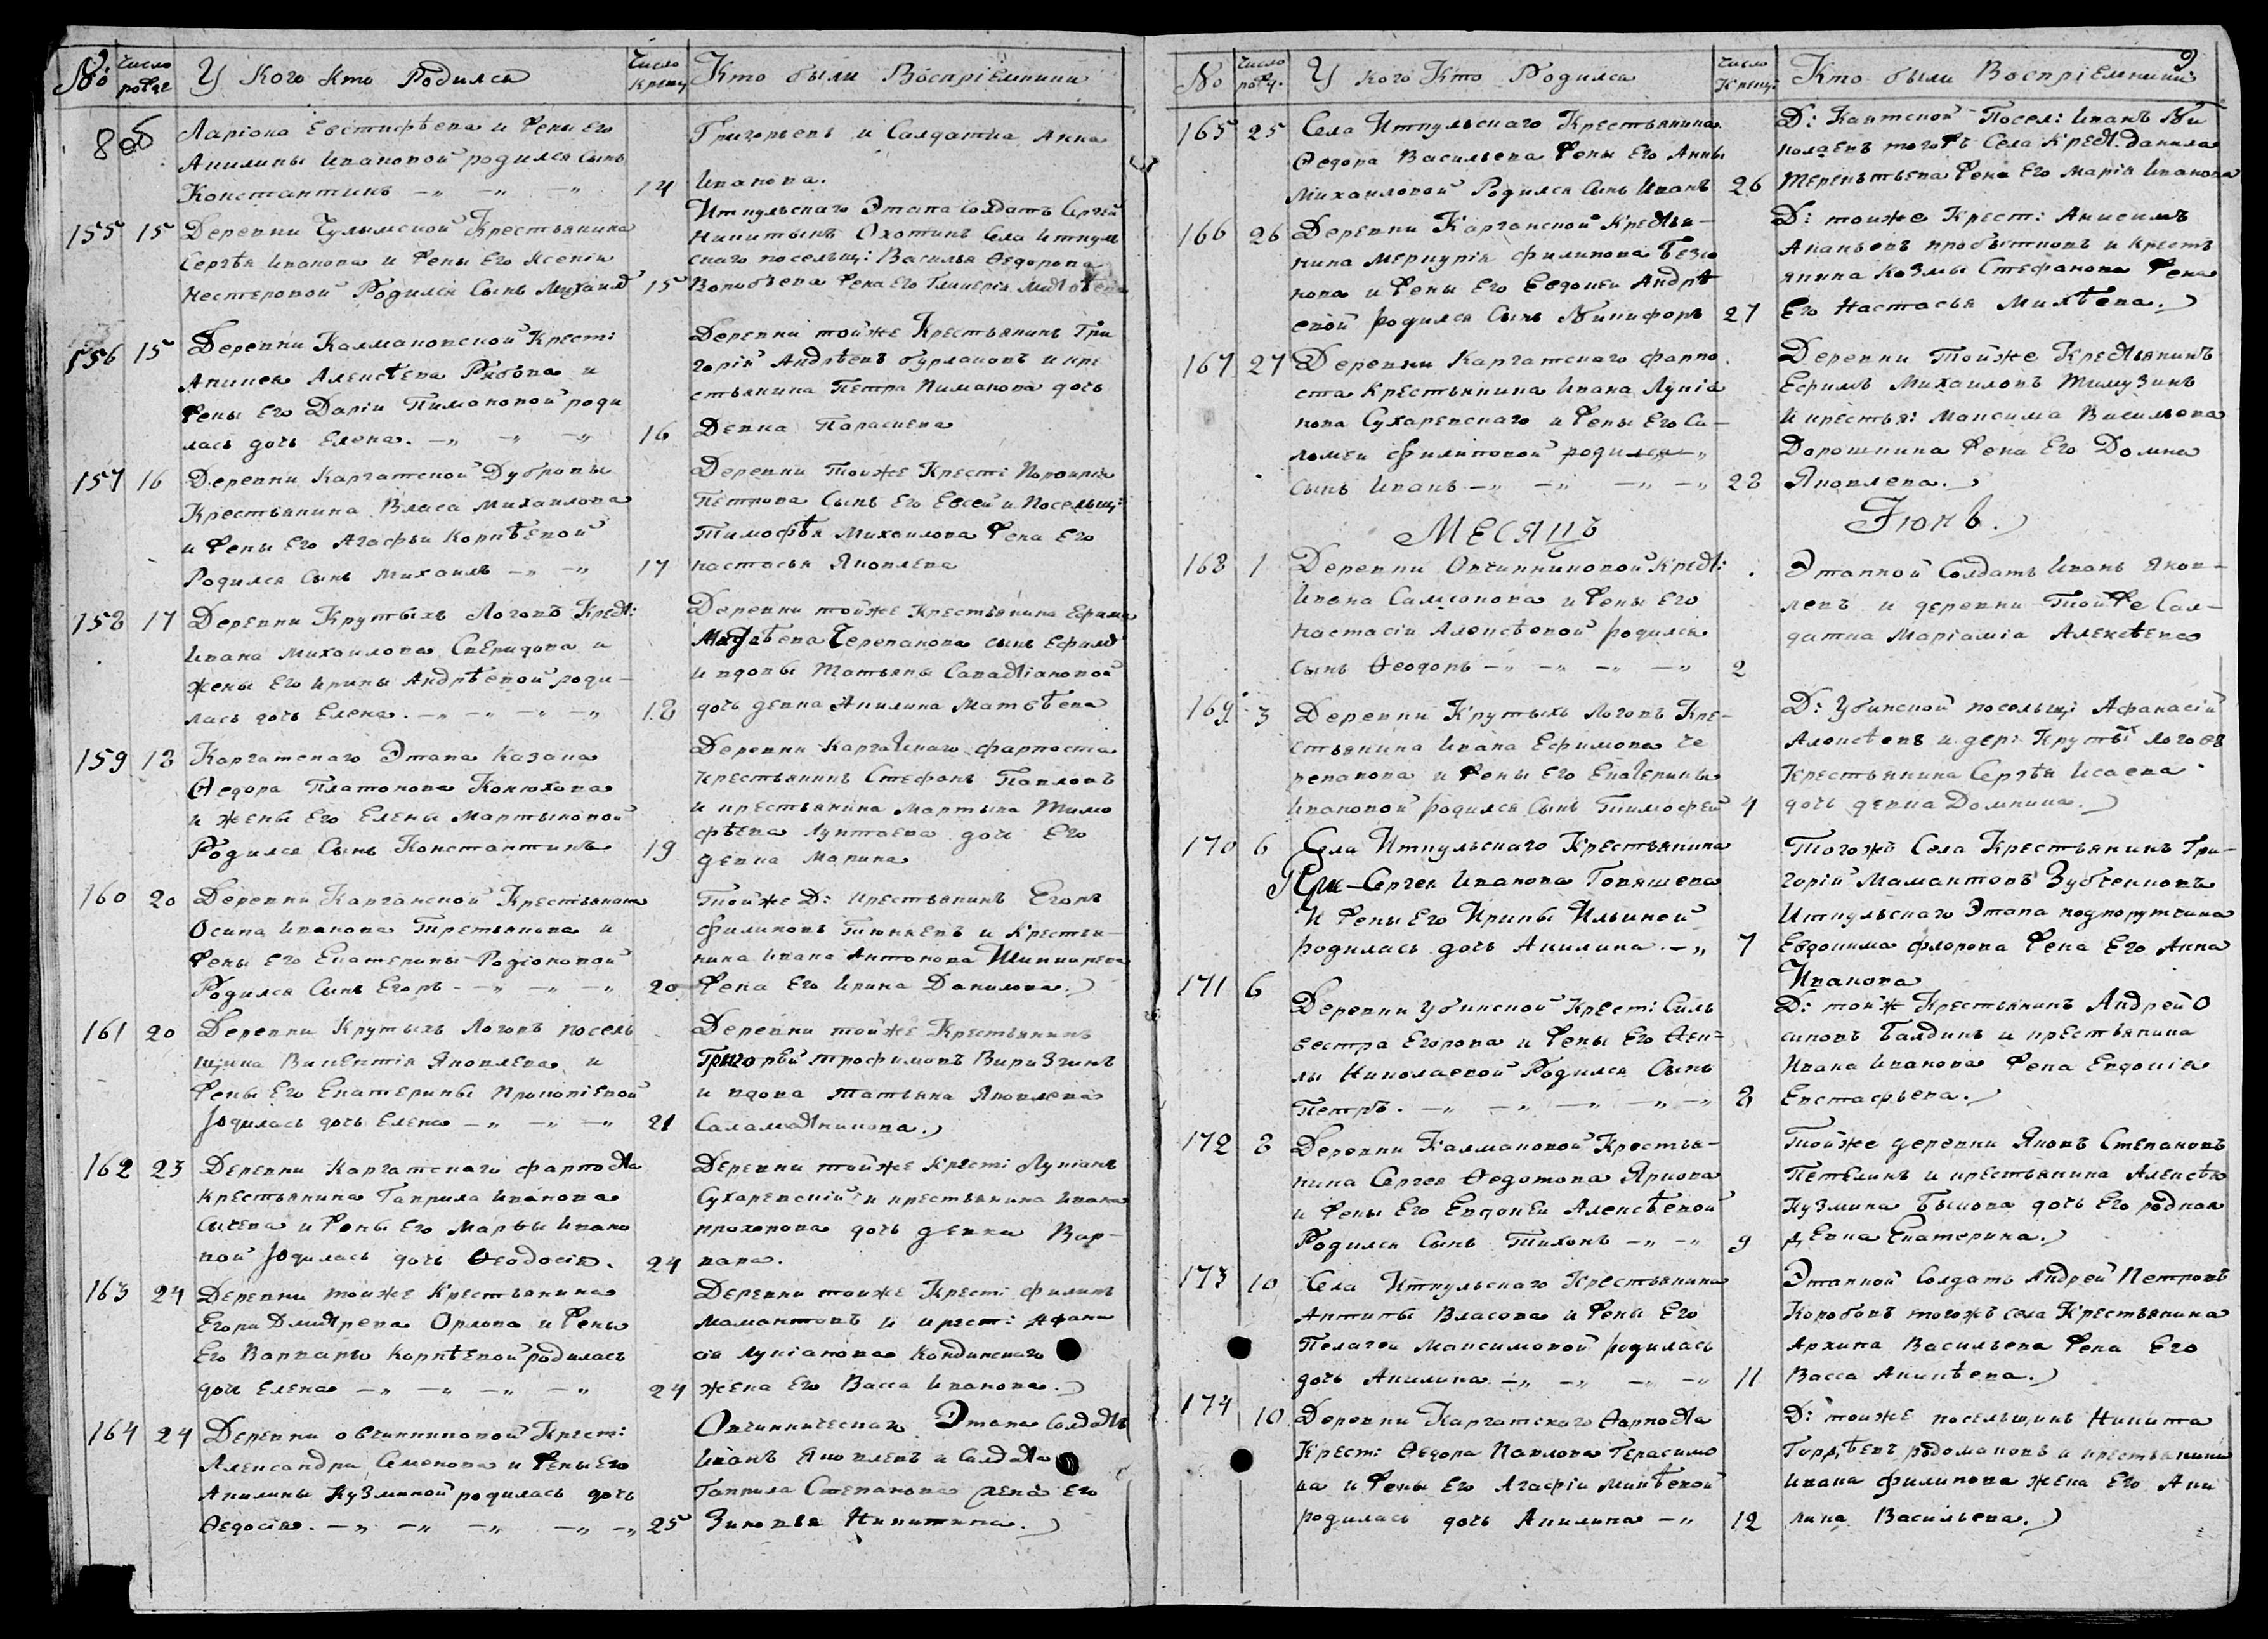 № Число рожде У Кого Кто Родился Число крещ Кто были Воспріемники
8 об
Ларіона Евстифѣева и жены Его
Акилины Ивановой родился Сынъ
Константинъ 14
Григорьевъ и Салдатка Анна
Иванова.
155 15 Деревни Чулымской Крестьянина
Сергѣя Иванова и жены Его Ксеніи
Нестеровой Родился Сынъ Михаилъ 15
Иткульскаго Этапа солдатъ Сергѣй
Никитинъ Охотинъ Села Иткуль
скаго посельщ: Василья Ѳедорова
Воробьева жена Его Гликерія
156 15 Деревни Калмаковской Крест:
Аникея Алексѣева Рябова и
жены Его Даріи Пимановой роди
лась дочь Елена. 16
Деревни тойже Крестьянинъ Гри
горій Андрѣевъ бурлаковъ и кре
стьянина Петра Пиманова дочь
Девка Параскева
157 16 Деревни Каргатской Дубровы
Крестьянина Власа Михаилова
и жены Его Агафьи Корнѣевой
Родился Сынъ Михаилъ 17
Деревни тойже Крест: Порфирія
Петрова Сынъ Его Евсей и Посельщ:
Тимофѣя Михаилова жена Его
настасья Яковлева
158 17 Деревни Крутыхъ Логовъ Крест:
Ивана Михаилова Свиридова и
жены Его Ирины Андрѣевой роди-
лась дочь Елена. 18
Деревни тойже Крестьянина Ефима
Матвѣева Черепанова сынъ Ефимъ
и вдовы Татьяны Савастіановой
дочь девка Акилина Матвѣева
159 18 Каргатскаго Этапа Казака
Ѳедора Платонова Конюхова
и жены Его Елены Мартыновой
Родился Сынъ Константинъ 19
Деревни Каргатскаго фарпоста
крестьянинъ Стефанъ Павловъ
и крестьянина Мартына Тимо
фѣева Лунтаева дочь Его
девка Марина
160 20 Деревни Карганской Крестьянина
Осипа Иванова Третьякова и
жены Его Екатерины Родіоновой
Родился Сынъ Егоръ 20
Тойже Д: крестьянинъ Егоръ
филиповъ Тюкаевъ и Крестья-
нина Ивана Антонова Шинкарева
жена Его Ирина Данилова.
161 20 Деревни Крутыхъ Логовъ посель
щика Викентія Яковлева и
жены Его Екатерины Прокопіевой
Родилась дочь Елена 21
Деревни тойже Крестьянинъ
Григорей трофимовъ Виризгинъ
и вдова татьяна Яковлева
Саламатникова.
162 23 Деревни Каргатскаго фарпоста
крестьянина Гаврила Иванова
Сычева и жены Его Марѳы Ивано
вой родилась дочь Ѳеодосія. 24
Деревни тойже Крест: Лукіанъ
Сухаревскій и крестьянина Ивана
прохорова дочь девка Вар-
вара.
163 24 Деревни тойже Крестьянина
Егора Дмитрева Орлова и жены
Его Варвары Корнѣевой родилась
дочь Елена 24
Деревни тойже Крест: филипъ
Мамантовъ и крест: Афана
сія Лукіанова Кондинскаго
жена Его Васса Иванова.
164 24 Деревни овчинниковой Крест:
Александра Семенова и жены Его
Акилины Кузминой родилась дочь
Ѳедосія. 25
Овчинническаго Этапа Солдатъ
Иванъ Яковлевъ и Солдата
Гаврила Степанова жена Его
Зиновья Никитина.
№ Число рожд. У кого Кто Родился Число Крещ: Кто были Воспріемники 9
165 25 Села Иткульскаго Крестьянина
Ѳедора Васильева жены Его Анны
Михаиловой Родился Сынъ Иванъ 26
Д: Каитской Посел: Иванъ Ни
колаевъ тогожъ Села Крест. Данила
Терентьева жена Его Марія Иванова
166 26 Деревни Карганской Крестья-
нина Меркурія филипова Безсо
нова и жены Его Евдокеи Андрѣ
евой родился Сынъ Никифоръ 27
Д: тойже Крест: Анисимъ
Ананьевъ пробытковъ и крестъ
янина Козмы Стефанова жена
Его Настасья Михѣева.
167 27 Деревни Каргатскаго фарпо
ста крестьянина Ивана Лукіа
нова Сухаревскаго и жены Его Са-
ломеи филиповой родился
сынъ Иванъ 28
Деревни Тойже Крестьянинъ
Ефимъ Михаиловъ Тимузинъ
и крестья: Максима Васильева
Дорошнина жена Его Домна
Яковлева.
МЕСЯЦЪ Іюнь.
168 1 Деревни Овчинниковой Крест:
Ивана Самсонова и жены Его
Настасіи Алексѣевой родился
сынъ Ѳеодоръ 2
Этапной Солдатъ Иванъ Яков-
левъ и деревни Тойже Сал-
датка Маріамія Алексѣева
169 3 Деревни Крутыхъ Логовъ Кре-
стьянина Ивана Ефимова Че
репанова и жены Его Екатерины
Ивановой родился Сынъ Тимофей 4
Д: Убинской посельщ: Афанасій
Алексѣевъ и дер: Крутых логовъ
Крестьянина Сергѣя Исаева
дочь девка Домника.
170 6 Села Иткульскаго Крестьянина
Сергея Иванова Говяшева
И жены Его Ирины Ильиной
родилась дочь Акилина 7
Тогожъ Села Крестьянинъ Гри-
горій Мамантовъ Зубченковъ
Иткульскаго Этапа подпорутчика
Евдокима флорова жена Его Анна
Иванова
171 6 Деревни Убинской Крест: Силь
вестра Егорова и жены Его Ѳек-
лы Николаевой Родился Сынъ
Петръ. 8
Д: тойж Крестьянинъ Андрей О
сиповъ Балдинъ и крестьянина
Ивана Иванова жена Евдокія
Евстафьева.
172 8 Деревни Калмаковой Крестья-
нина Сергея Ѳедотова Яркова
и жены Его Евдокеи Алексѣевой
Родился Сынъ Тихонъ 9
Тойже деревни Яковъ Степановъ
Петелинъ и крестьянина Алексѣя
Кузмина Быкова дочь Его родная
девка Екатерина.
173 10 Села Иткульскаго Крестьянина
Антипы Власова и жены Его
Пелагеи Максимовой родилась
дочь Акилина 11
Этапной Солдатъ Андрей Петровъ
Коробовъ тогожъ села Крестьянина
Архипа Васильева жена Его
Васса Аникѣева.
174 10 Деревни Каргатскаго Ѳарпоста
Крест: Ѳедора Павлова Герасимо
ва и жены Его Агафіи Микѣевой
родилась дочь Акилина 12
Д: тойже посельщикъ Никита
Гордѣевъ родомановъ и крестьянина
Ивана филипова жена Его Аки
лина Васильева.